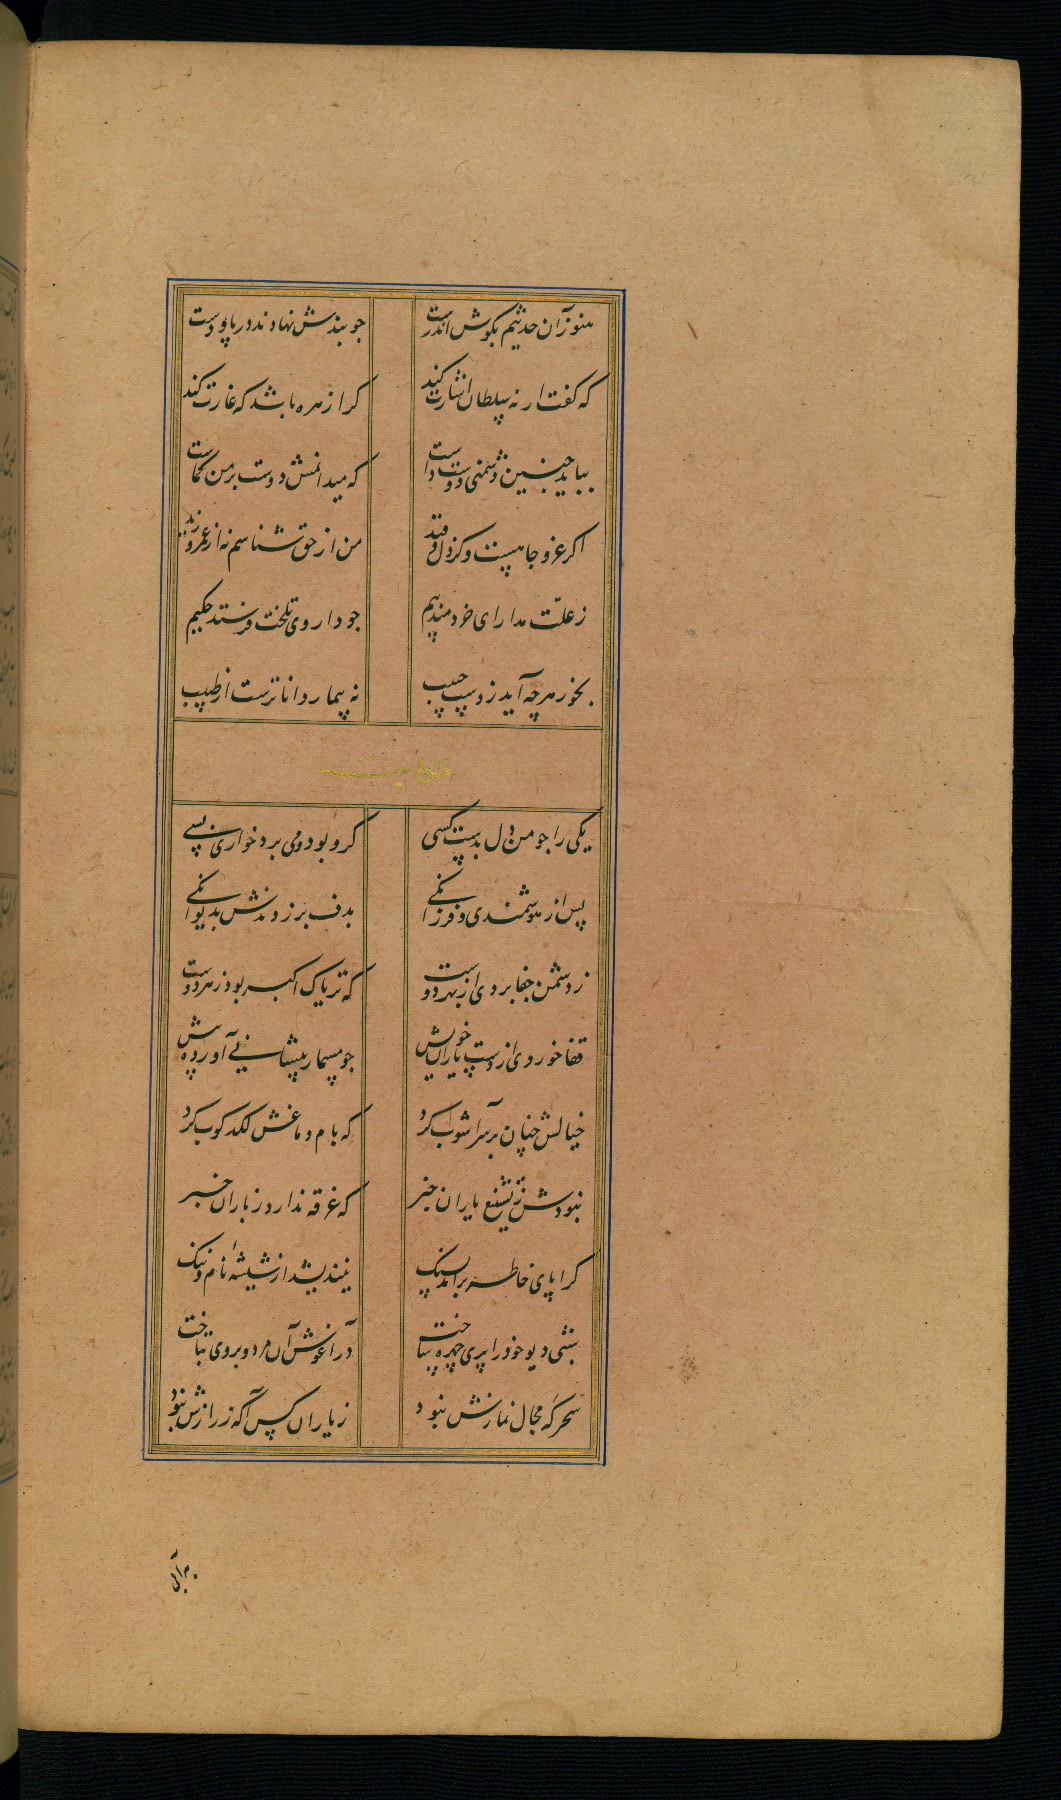 هنوز آن حدیثم بکوش اندرست جو بندش نهادند در پا و دست
که کفت ار نه سلطان اشارت کند کرا زهره باشد که غارت کند
بباید چنین دشمنی دوست داشت که میدانمش دوست بر من کماشت
اکر عز و جاهست و کر ذل و قید من از حق شناسم نه از عمرو و زید
ز علّت مدار ای خردمند بیم جو داروی تلخت فرستد حکیم
بخور هرچه آید ز دست حبیب نه بیمار داناترست از طبیب
حکایت
یکی را جو من دل بدست کسی کرو بود و می برد خواری بسی
پس از هوشمندی و فرزانکی بدف بر زدندش بدیوانکی
ز دشمن جفا بردی از بهر دوست که تریاک اکبر بود زهر دوست
قفا خوردی از دست یاران خویش جو مسمار پیشانی آورده پیش
خیالش چنان بر سر آشوب کرد که بام دماغش لکدکوب کرد
نبودش ز تشنیع یاران خبر که غرقه ندارد ز باران خبر
کرا پای خاطر برآمد بسنک نیندیشد از شیشهٔ نام و ننک
شبی دیو خود را پری چهره ساخت در آغوش آن مرد و بر وی بتاخت
سحرکه مجال نمازش نبود ز یاران کس آکه ز رازش نبود
به آبی